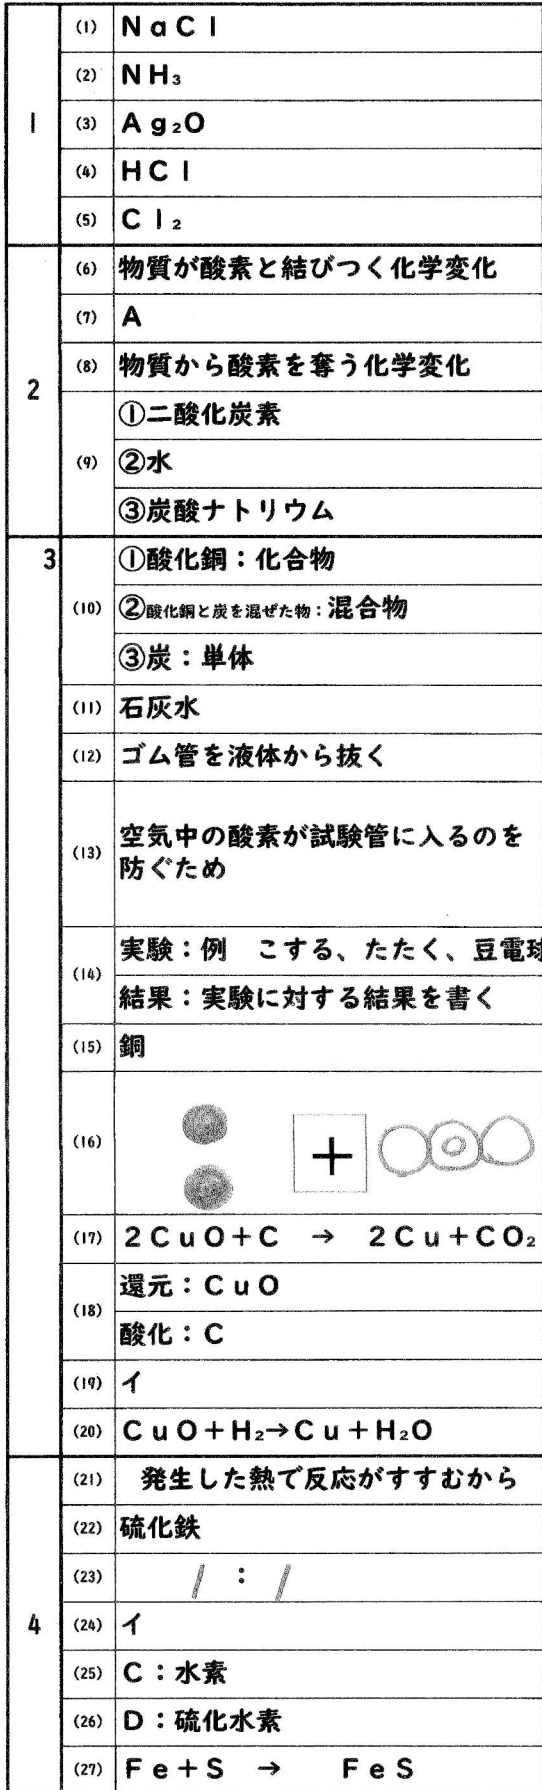 1
(1) NaCl
(2) NH₃
(3) Ag₂O
(4) HCl
(5) Cl₂
2
(6) 物質が酸素と結びつく化学変化
(7) A
(8) 物質から酸素を奪う化学変化
(9) ①二酸化炭素
②水
③炭酸ナトリウム
3
(10) ①酸化銅：化合物
②酸化銅と炭を混ぜた物：混合物
③炭：単体
(11) 石灰水
(12) ゴム管を液体から抜く
(13) 空気中の酸素が試験管に入るのを
防ぐため
(14) 実験：例　こする、たたく、豆電球
結果：実験に対する結果を書く
(15) 銅
(16) ＋
(17) 2CuO＋C　→　2Cu＋CO₂
(18) 還元：CuO
酸化：C
(19) イ
(20) CuO＋H₂→Cu＋H₂O
4
(21) 発生した熱で反応がすすむから
(22) 硫化鉄
(23) 1：1
(24) イ
(25) C：水素
(26) D：硫化水素
(27) Fe＋S　→　FeS